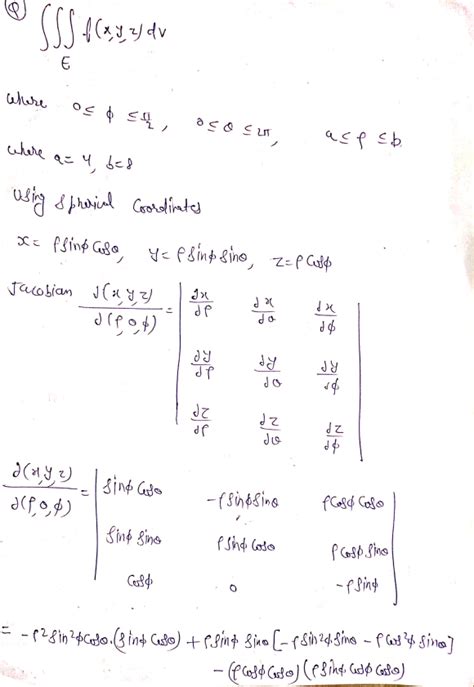 Q
∭ f(x,y,z) dv
E
where 0 ≤ φ ≤ π/2, 0 ≤ θ ≤ 2π, a ≤ ρ ≤ b.
where a = 4, b = 8
Using Spherical Coordinates
x = ρ sinφ cosθ, y = ρ sinφ sinθ, z = ρ cosφ
Jacobian ∂(x,y,z)/∂(ρ,θ,φ) = | ∂x/∂ρ ∂x/∂θ ∂x/∂φ |
| ∂y/∂ρ ∂y/∂θ ∂y/∂φ |
| ∂z/∂ρ ∂z/∂θ ∂z/∂φ |
∂(x,y,z)/∂(ρ,θ,φ) = | sinφ cosθ -ρ sinφ sinθ ρ cosφ cosθ |
| sinφ sinθ ρ sinφ cosθ ρ cosφ sinθ |
| cosφ 0 -ρ sinφ |
= -ρ² sin²φ cosθ.(sinφ cosθ) + ρ sinφ sinθ [-ρ sin²φ sinθ - ρ cos²φ sinθ]
- (ρ cosφ cosθ) (ρ sinφ cosφ cosθ)